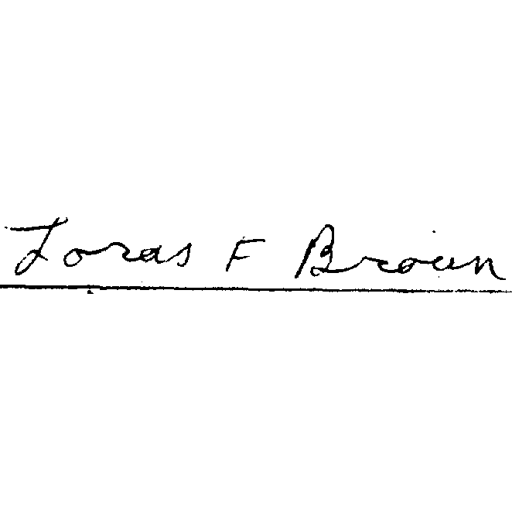 Loras F Brown